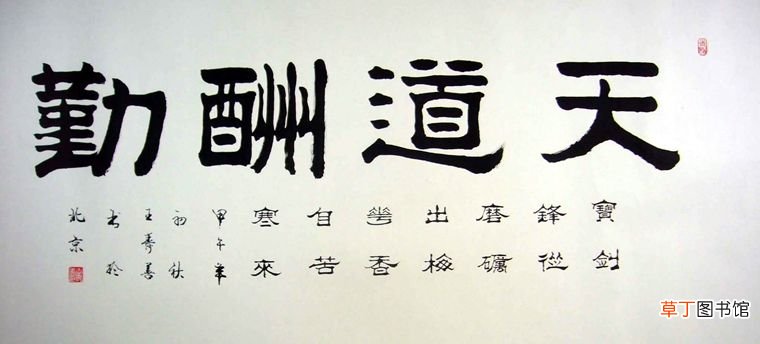 天道酬勤
寶劍
鋒從
磨礪
出梅
華香
自苦
寒來
甲午年
初秋
王壽善
书於
北京
草丁图书馆